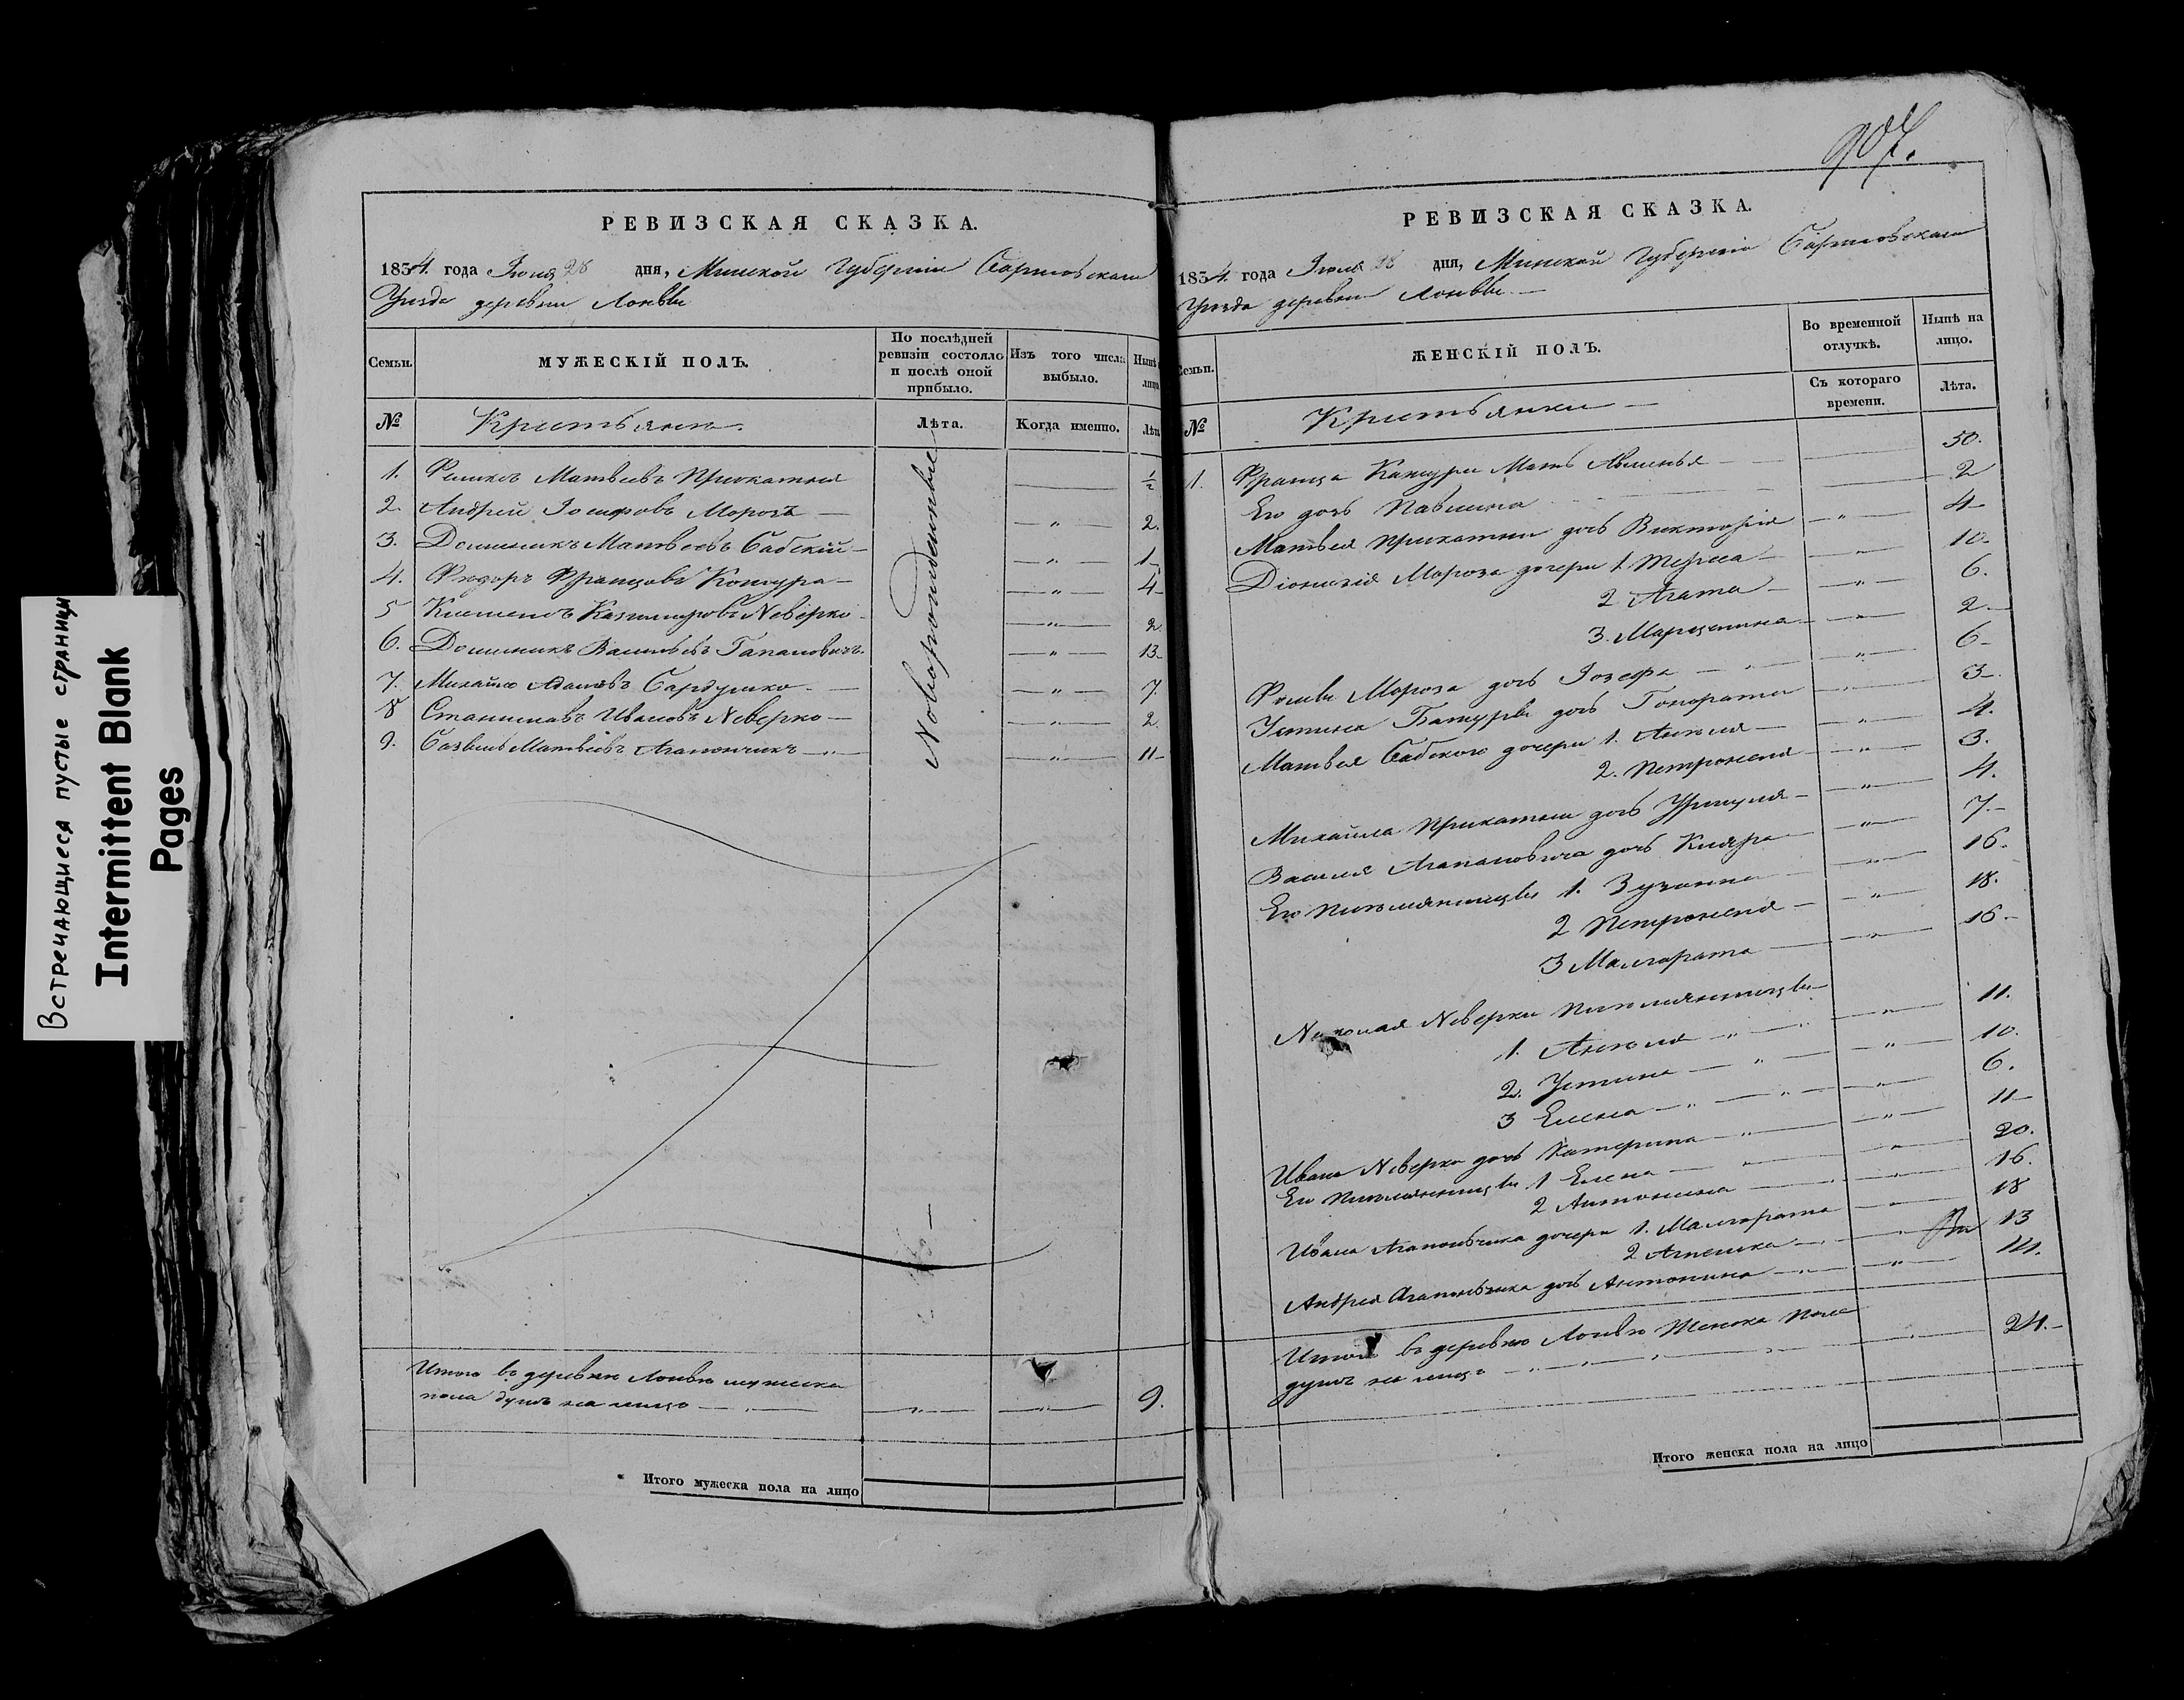 Встречающиеся пустые страницы
Intermittent Blank
Pages
РЕВИЗСКАЯ СКАЗКА.
1834. года Июня 28 дня, Минской Губернiи Борисовскаго
Уѣзда деревни
Семьи.
МУЖЕСКIЙ ПОЛЪ.
По послѣдней
ревизiи состояло
и послѣ оной
прибыло.
Изъ того числа
выбыло.
Нынѣ
лицо
№
Крестьяне
Лѣта.
Когда именно.
Лѣта
Новорожденные
1. Феликсъ Матвѣевъ Прикатня ½
2. Андрей Iосифовъ Морозъ — " — 2.
3. Доминикъ Матвѣевъ Сабскiй — " — 1
4. Федоръ Францовъ Кацура — " — 4
5 Клеменсъ Казимировъ Неверко — " — 2
6. Доминикъ Васильевъ Гапановичъ. — " — 13
7. Михайло Адамовъ — " — 7
8 Станиславъ Ивановъ Неверко — " — 2
9. Матвѣевъ Агапончикъ — " — 11
Итого въ деревнѣ мужеска
пола душъ на лицо — " — " — 9.
Итого мужеска пола на лицо
907.
РЕВИЗСКАЯ СКАЗКА.
1834. года Июня 28 дня, Минской Губернiи Борисовскаго
Уѣзда деревни
Семьи.
ЖЕНСКIЙ ПОЛЪ.
Во временной
отлучкѣ.
Нынѣ на
лицо.
Съ котораго
времени.
Лѣта.
№
Крестьянки
1. Франца Кацуры Мать 50.
Его дочь Павлина 2
Матвея Прикатни дочь Викторiя — " — 4
Дiонизiя Мороза дочери 1 Тереса — " — 10.
2 Агата — " — 6.
3. Марцелина — " — 2.
Мороза дочь Iозефа — " — 6
Устина дочь Гонората — " — 3
Матвея Сабскаго дочери 1. Анеля — " — 4.
2. Петронеля — " — 3.
Михайла Прикатни дочь Уршуля — " — 4.
Василя Агапановича дочь Кляра — " — 7.
Его племянницы 1. Зузанна — " — 16.
2 Петронеля — " — 18.
3 Малгарата — " — 16
Николая Неверки племянницы
1. Анеля — " — 11.
2. Устина — " — 10.
3 Елена — " — 6.
Ивана Неверко дочь Катерина — " — 11
Его племянницы 1 Елена — " — 20.
2 Антонина — " — 16.
Ивана Агапончика дочери 1. Малгарата 18
2 Агнешка — " — 13
Андрея Агапончика дочь Антонина — " — 14.
Итого въ деревнѣ женска пола
душъ на лицо — " — 24.
Итого женска пола на лицо